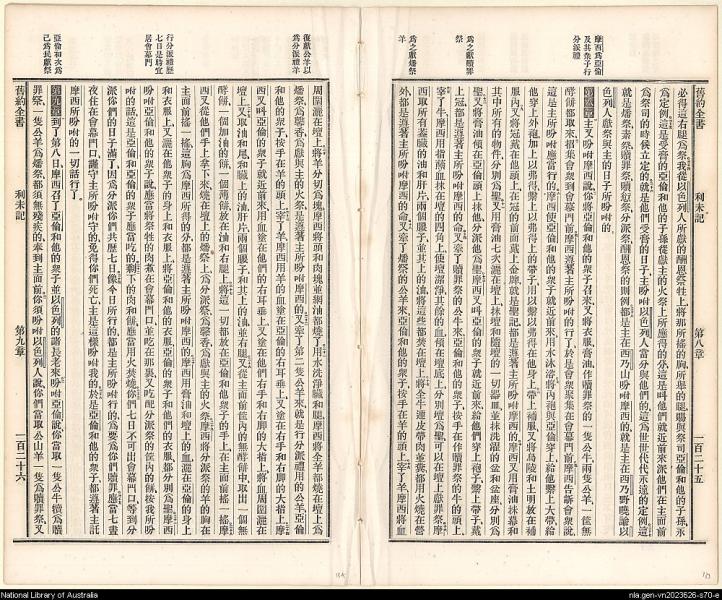 摩西爲亞倫
及其衆子行
分派禮
爲之獻贖罪
祭
爲之獻燔祭
羊
舊約全書
利未記
第八章
一百二十五
必得這右腿爲祭我從以色列人所獻的酬恩祭牲上將那所搖的胸所舉的腿賜與祭司亞倫和他的子孫永
爲定例這是受膏的亞倫和他的子孫從獻主的火祭上所應得的分這是叫他們就近前來派他們在主面前
爲祭司的時候立定的就是他們受膏的日子主吩咐以色列人當分與他們的這爲世世代代永遠的定例這
就是燔祭素祭贖罪祭贖愆祭分派祭酬恩祭的則例都是主在西乃山吩咐摩西的就是主在西乃野曉諭以
色列人獻祭與主的日子所吩咐的
第八章主又吩咐摩西說你將亞倫和他的衆子召來又將衣服膏油作贖罪祭的一隻公牛兩隻公羊一筐無
酵餅都取來招集會衆到會幕門前摩西遵著主所吩咐的行了於是會衆聚集在會幕門前摩西告訴會衆說
這是主所吩咐應當行的摩西便叫亞倫和他的衆子就近前來用水沐浴將內袍與亞倫穿上給他繫上大帶給
他穿上外袍加上以弗得繫上以弗得上的帶子用以繫以弗得在他身上帶上補服又將烏陵和土明放在補
服內又將冠戴在他頭上在冠的前面戴上金牌就是聖冠都是遵著主所吩咐摩西的摩西又用膏油抹幕和
其中所有的物件分別爲聖又用膏油七次灑在壇上抹壇和隨壇的一切器皿並抹洗濯的盆和盆座分別爲
聖又將膏油傾在亞倫頭上抹他分派他爲聖摩西又叫亞倫的衆子就近前來給他們穿上袍子繫上帶子戴
上冠都是遵著主所吩咐摩西的命又牽了贖罪祭的公牛來亞倫和他的衆子按手在作贖罪祭的牛的頭上
宰了牛摩西用指頭蘸血抹在壇的四角上使壇潔淨其餘的血傾在壇底上分別壇爲聖可以在壇上獻罪祭摩
西取所有蓋臟的油和肝片兩個腰子並其上的油將這些都焚在壇上將全牛連皮帶肉並糞都用火燒在營
外都是遵著主所吩咐摩西的命又牽了燔祭的公羊來亞倫和他的衆子按手在羊的頭上宰了羊摩西將血
復獻公羊以
爲分派禮羊
行分派禮歷
七日是時宜
居會幕門
亞倫初次爲
己爲民獻祭
周圍灑在壇上將羊分切爲塊摩西將頭和肉塊並網油都燒了用水洗淨臟和腿摩西將全羊都燒在壇上爲
燔祭爲馨香爲獻與主的火祭是遵著主所吩咐摩西的又牽了第二隻公羊來就是行分派禮用的公羊亞倫
和他的衆子按手在羊的頭上宰了羊摩西用羊的血塗在亞倫的右耳垂上又塗在右手和右脚的大指上摩
西又叫亞倫的衆子就近前來用血塗在他們的右耳垂上又塗在他們右手和右脚的大指上將血周圍灑在
壇上又取油和尾和臟上的油肝片兩個腰子和其上的油並右腿又從主面前筐內的無酵餅中取出一個無
酵餅一個加油的餅一個薄餅放在油和右腿上將這一切都放在亞倫和他衆子的手上在主面前搖一搖摩
西又從他們手上拿下來燒在壇上的燔祭上爲分派祭爲馨香爲獻與主的火祭摩西將分派祭的羊的胸在
主面前搖一搖這胸爲摩西所得的分是遵著主所吩咐摩西的摩西用膏油和壇上的血灑在亞倫的身上
和衣服上又灑在他衆子的身上和衣服上將亞倫和他的衣服亞倫的衆子和他們的衣服都分別爲聖摩西
吩咐亞倫和他的衆子說應當將祭牲的肉煮在會幕門口並吃在那裏又吃酌分派祭的筐內的餅按我所吩
咐的話這是亞倫和亞倫的衆子應當吃的剩下的肉和餅應當用火焚燒你們七日不可出會幕門口等到分
派你們的日子滿了因爲分派你們共歷七日像今日所行的都是主所吩咐行的爲要爲你們贖罪應當七晝
夜住在會幕門口謹守主所吩咐守的免得你們死亡主是這樣吩咐我的於是亞倫和他的衆子都遵著主託
摩西所吩咐的一切話行了
第九章到了第八日摩西召了亞倫和他的衆子並以色列的諸長老來吩咐亞倫說你當取一隻公牛犢爲贖
罪祭一隻公羊爲燔祭都須無殘疾的牽到主面前你須吩咐以色列人說你們當取公山羊一隻爲贖罪祭又
舊約全書
利未記
第九章
一百二十六
National Library of Australia
nla.gen-vn2023526-s70-e